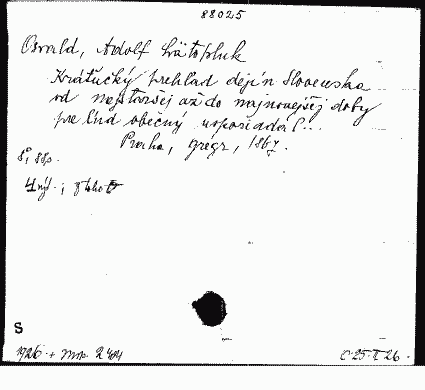 88025
Osvald, Adolf Svätopluk
Krátučký prehľad dejín Slovenska
od najstaršej až do najnovejšej doby
pre ľud obecný usporiadal ...
Praha, Grégr, 1867.
8°, 88 s.
S
1926 +
C 25-II 26